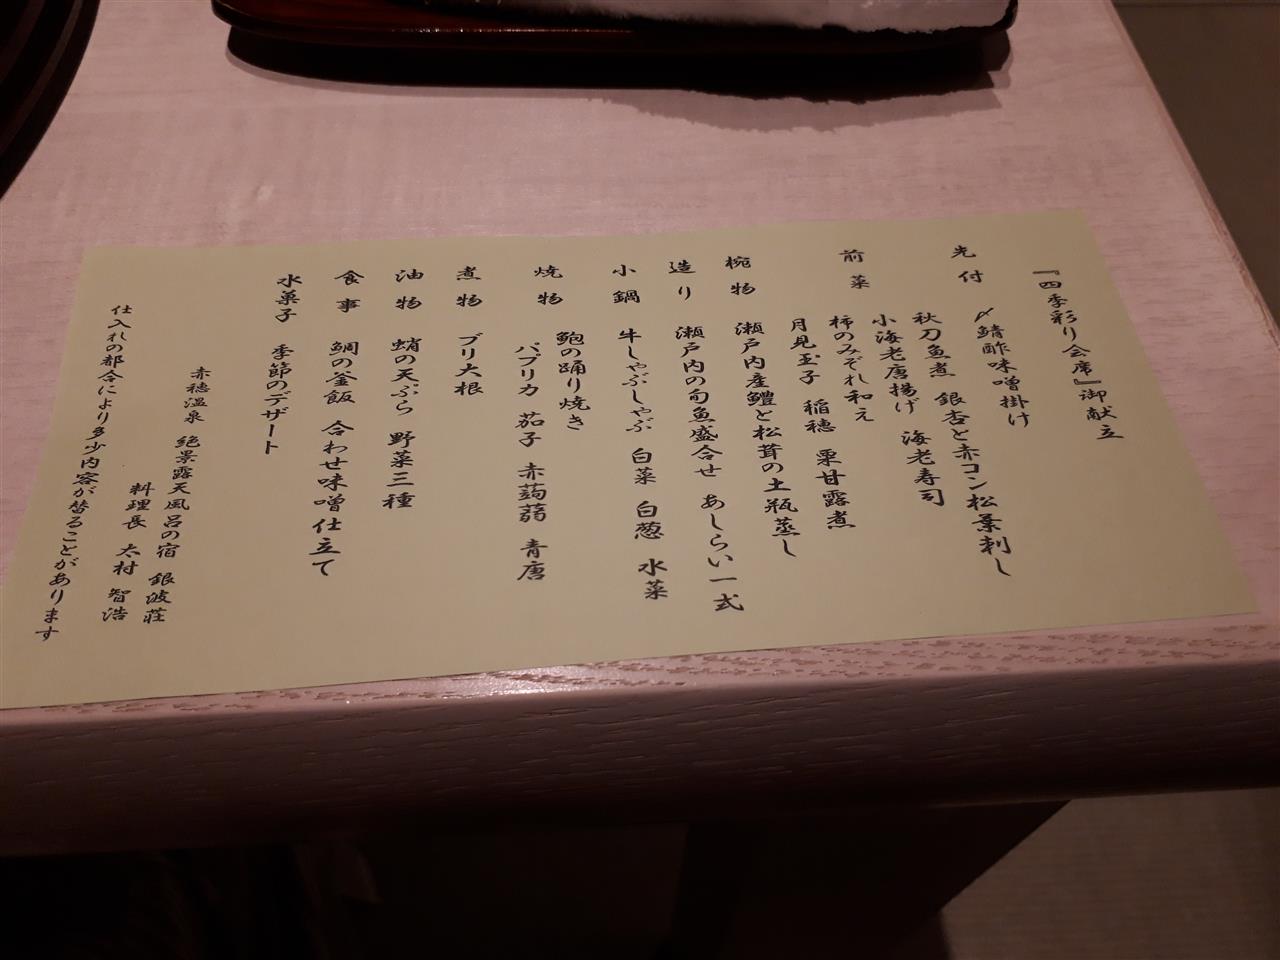 『四季彩り会席』御献立
先付 〆鯖酢味噌掛け
前菜 秋刀魚煮 銀杏と赤コン松葉刺し
小海老唐揚げ 海老寿司
柿のみぞれ和え
月見玉子 稲穂 栗甘露煮
椀物 瀬戸内産鱧と松茸の土瓶蒸し
造り 瀬戸内の旬魚盛合せ あしらい一式
小鍋 牛しゃぶしゃぶ 白菜 白葱 水菜
焼物 鮑の踊り焼き
パプリカ 茄子 赤蒟蒻 青唐
煮物 ブリ大根
油物 蛸の天ぷら 野菜三種
食事 鯛の釜飯 合わせ味噌仕立て
水菓子 季節のデザート
赤穂温泉 絶景露天風呂の宿 銀波荘
料理長 太村 智浩
仕入れの都合により多少内容が替ることがあります